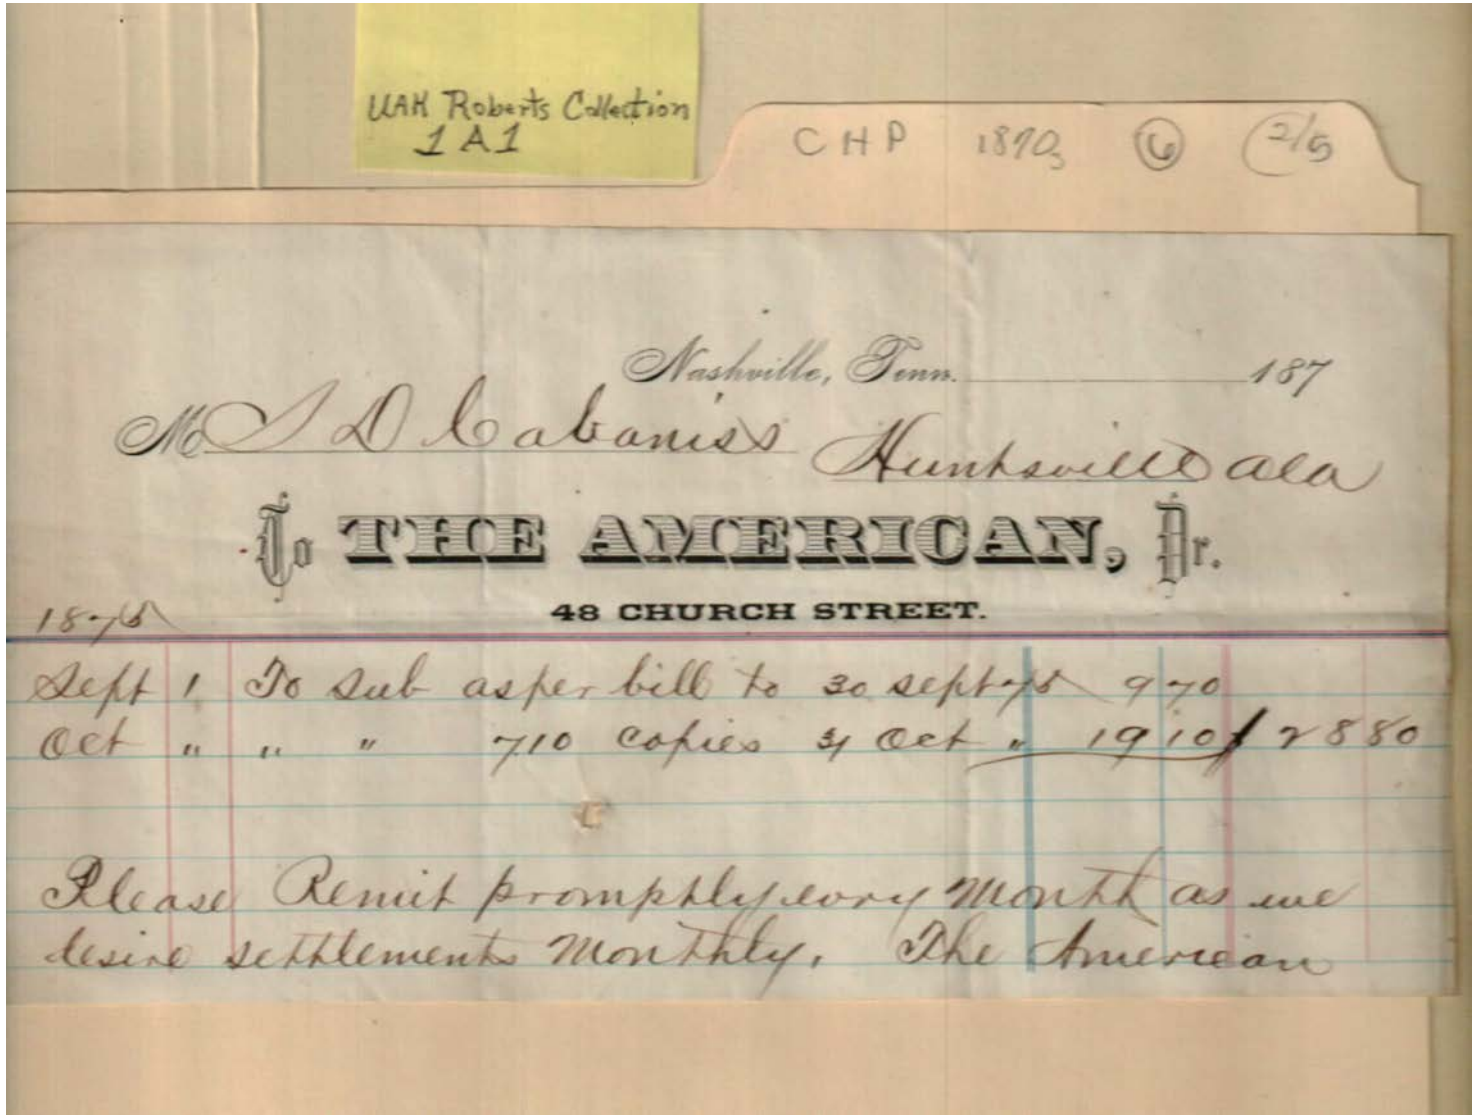 UAH Roberts Collection
1 A 1
CHP 1870s 6 2/5
Nashville, Tenn. 187
M S D Cabaniss Huntsville Ala
To THE AMERICAN, Dr.
48 CHURCH STREET.
1875
Sept 1 To Sub as per bill to 30 Sept 75 9 70
Oct " " " 710 Copies 31 Oct " 19 10 / 28 80
Please Remit promptly evry Month as we
desire settlements Monthly. The American